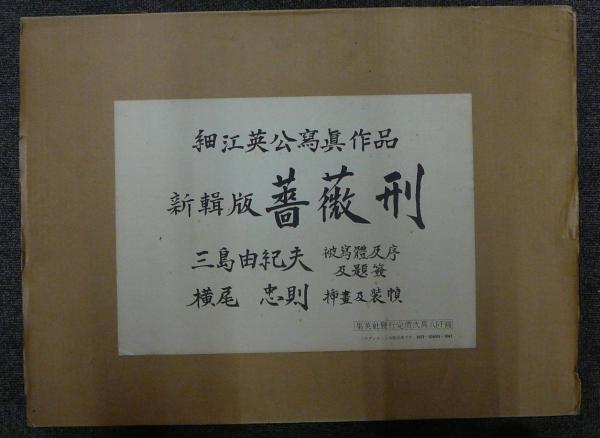 細江英公寫眞作品
新輯版 薔薇刑
三島由紀夫 被寫體及序
及題簽
横尾 忠則 挿畫及装幀
集英社發行定價貳萬八阡圓